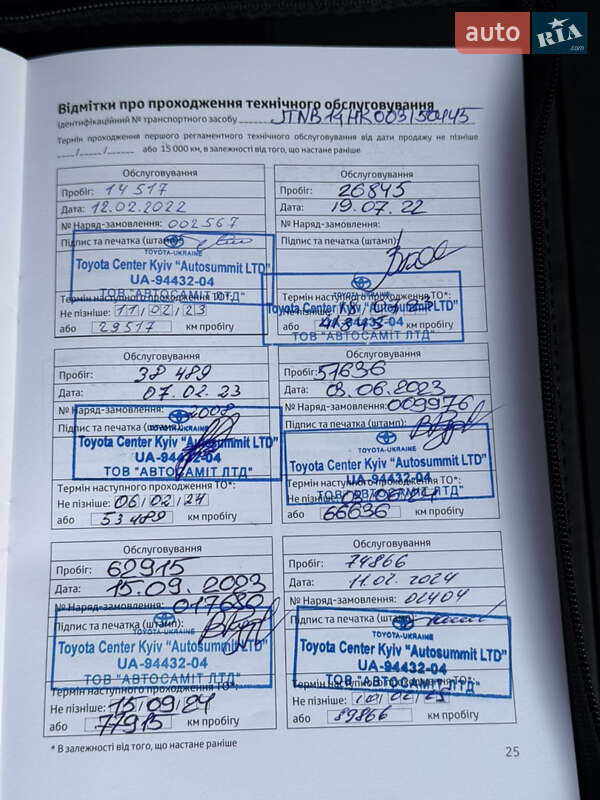 auto RIA .com
Відмітки про проходження технічного обслуговування
Ідентифікаційний № транспортного засобу JTNB14HK003150445
Термін проходження першого регламентного технічного обслуговування від дати продажу не пізніше
___/___/___ або 15 000 км, в залежності від того, що настане раніше
Обслуговування
Пробіг: 14 517
Дата: 12.02.2022
№ Наряд-замовлення: 002567
Підпис та печатка (штамп):
TOYOTA-UKRAINE
Toyota Center Kyiv "Autosummit LTD"
UA-94432-04
ТОВ "АВТОСАМІТ ЛТД"
Термін наступного проходження ТО*:
Не пізніше: 11/02/23
або 29517 км пробігу
Обслуговування
Пробіг: 26845
Дата: 19.07.22
№ Наряд-замовлення:
Підпис та печатка (штамп):
TOYOTA-UKRAINE
Toyota Center Kyiv "Autosummit LTD"
UA-94432-04
ТОВ "АВТОСАМІТ ЛТД"
Термін наступного проходження ТО*:
Не пізніше: 18
або 41845 км пробігу
Обслуговування
Пробіг: 38 489
Дата: 07.02.23
№ Наряд-замовлення: 2008
Підпис та печатка (штамп):
Toyota Center Kyiv "Autosummit LTD"
UA-94432-04
ТОВ "АВТОСАМІТ ЛТД"
Термін наступного проходження ТО*:
Не пізніше: 06/02/24
або 53489 км пробігу
Обслуговування
Пробіг: 51636
Дата: 03.06.2023
№ Наряд-замовлення: 009976
Підпис та печатка (штамп):
TOYOTA-UKRAINE
Toyota Center Kyiv "Autosummit LTD"
UA-94432-04
ТОВ "АВТОСАМІТ ЛТД"
Термін наступного проходження ТО*:
Не пізніше:
або 66636 км пробігу
Обслуговування
Пробіг: 62915
Дата: 15.09.2023
№ Наряд-замовлення: 017680
Підпис та печатка (штамп):
TOYOTA-UKRAINE
Toyota Center Kyiv "Autosummit LTD"
UA-94432-04
ТОВ "АВТОСАМІТ ЛТД"
Термін наступного проходження ТО*:
Не пізніше: 15/09/24
або 77915 км пробігу
Обслуговування
Пробіг: 74866
Дата: 11.02.2024
№ Наряд-замовлення: 02404
Підпис та печатка (штамп):
TOYOTA-UKRAINE
Toyota Center Kyiv "Autosummit LTD"
UA-94432-04
ТОВ "АВТОСАМІТ ЛТД"
Термін наступного проходження ТО*:
Не пізніше: 10/02/25
або 89866 км пробігу
* В залежності від того, що настане раніше
25